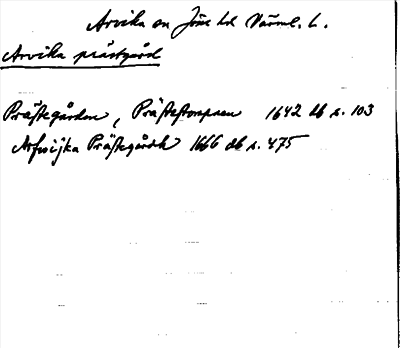 Arvika sn Jösse hd Värml. L.
Arvika prästgård
Prästegården, Prästetorpen 1642 db s. 103
Arfwijka Prästegårdh 1666 db s. 475